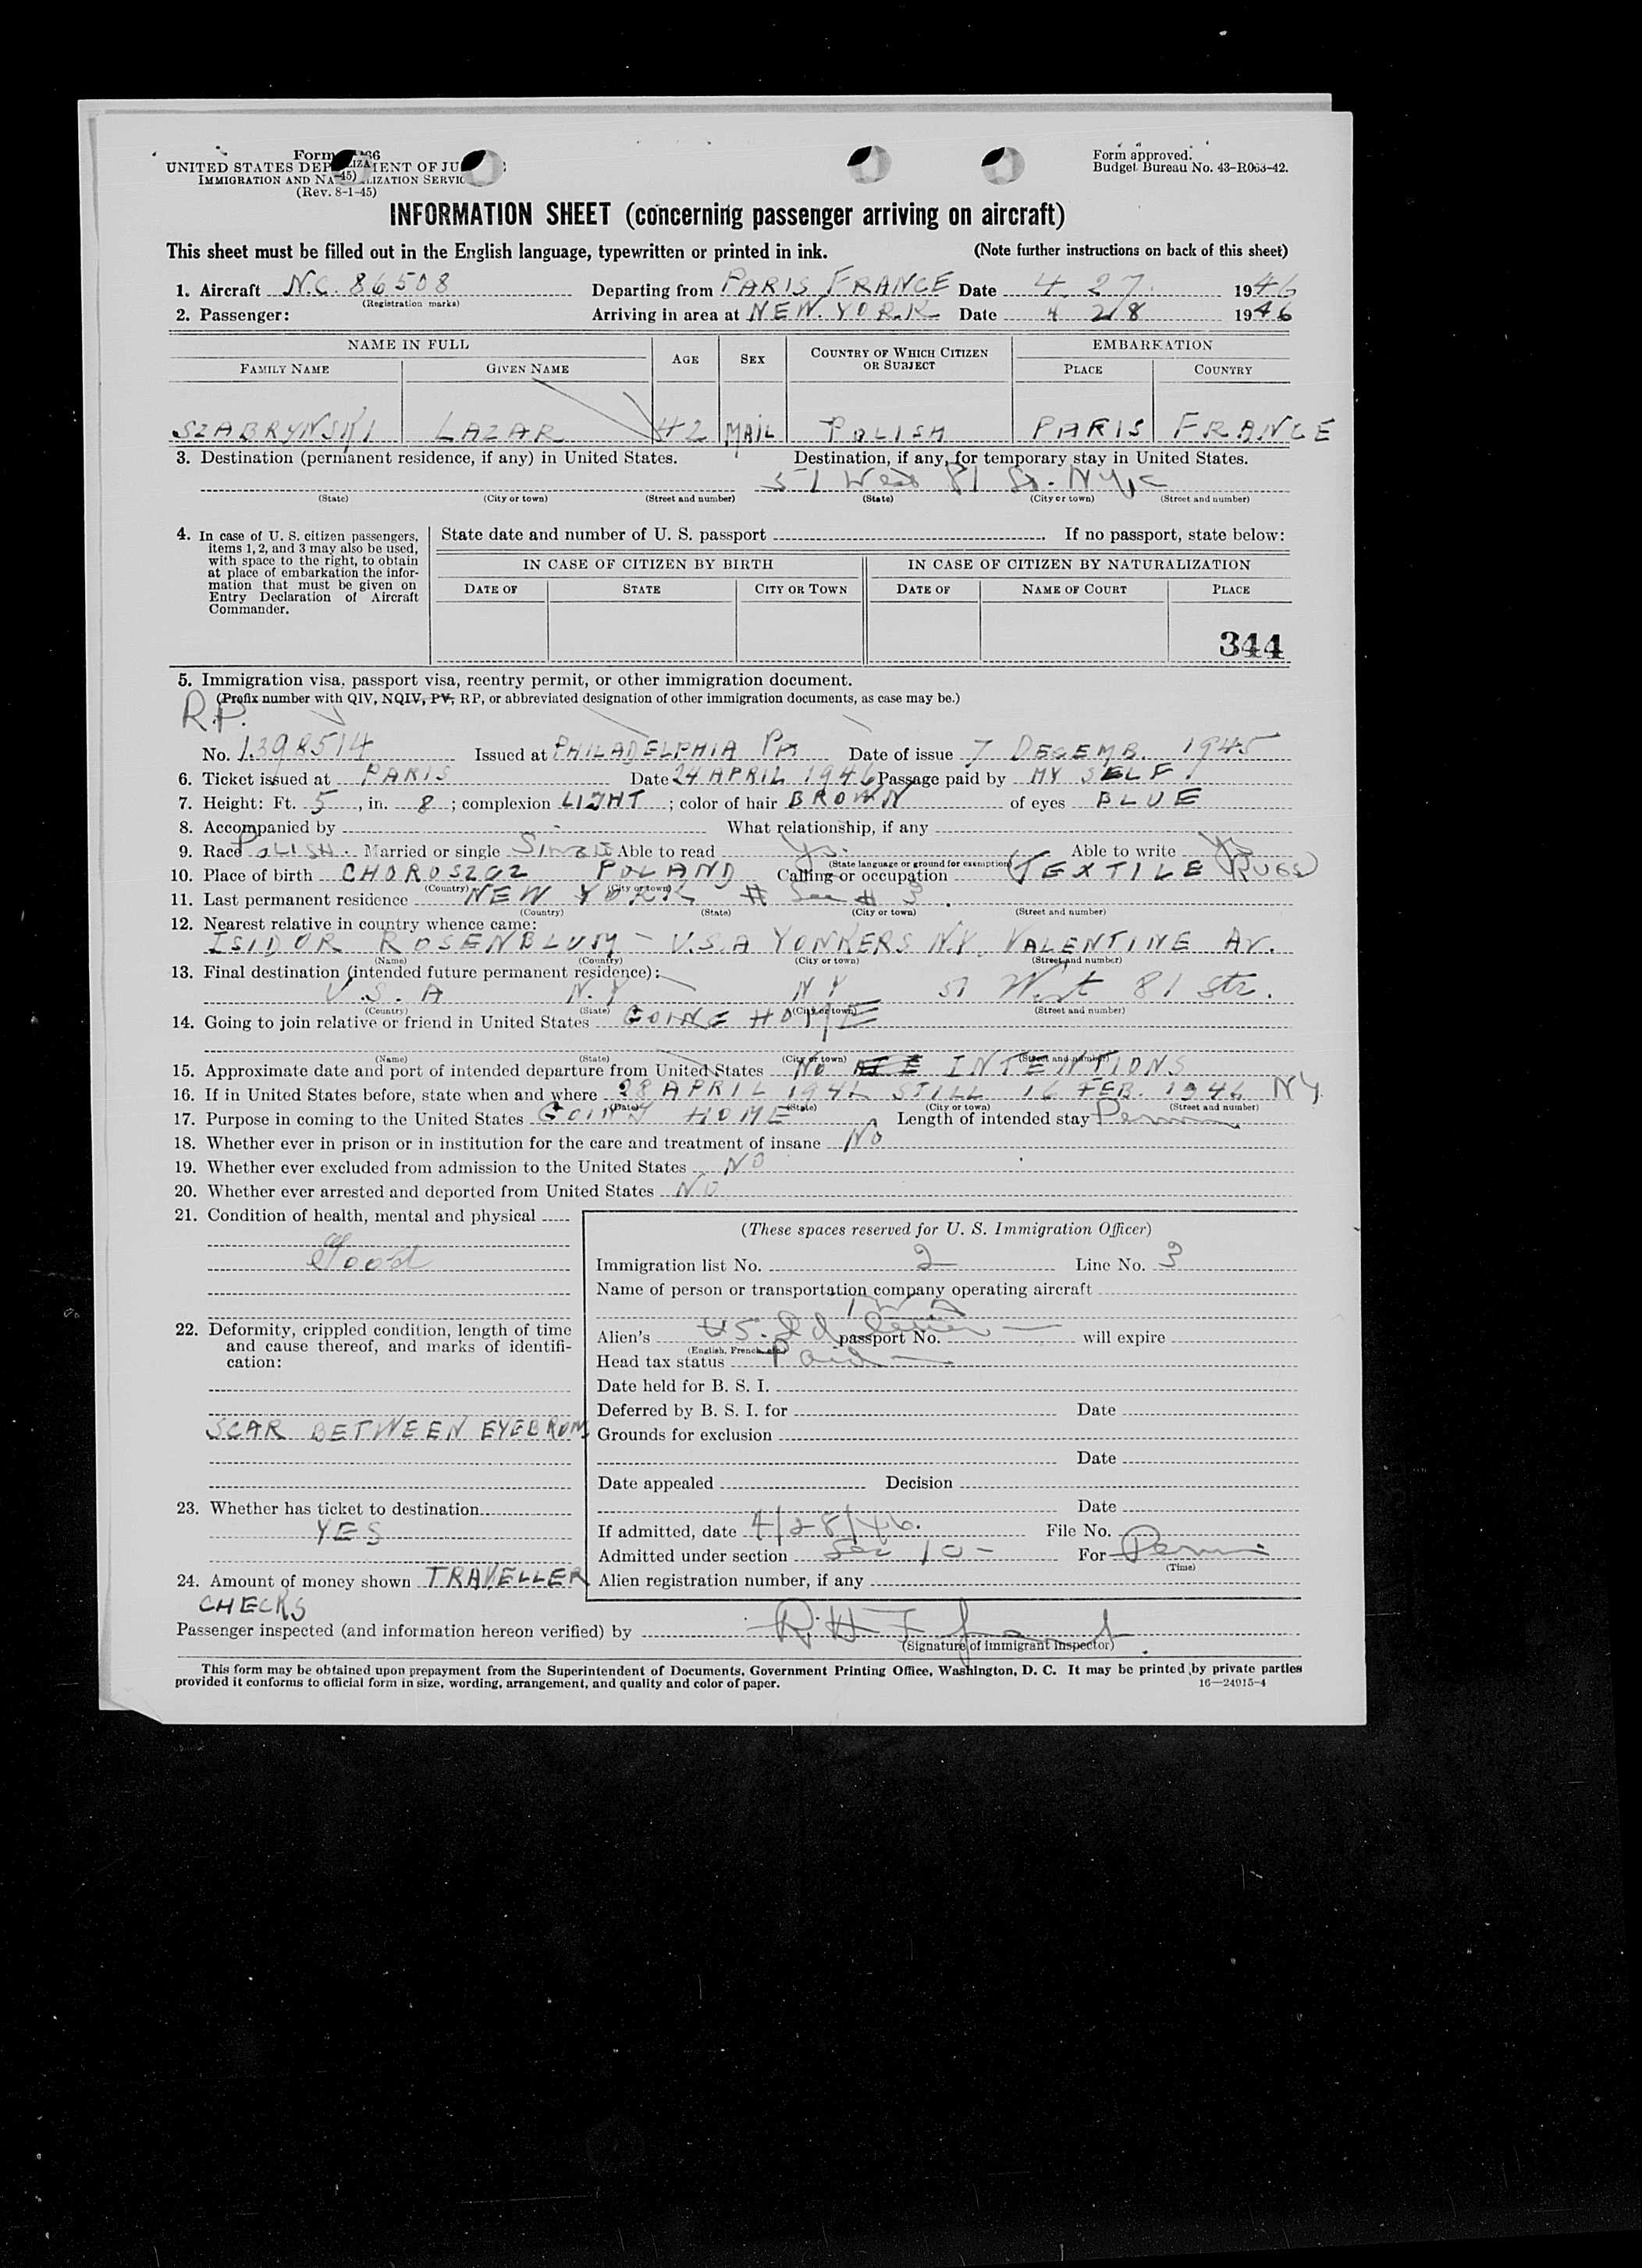 Form 66
UNITED STATES DEP IZA MENT OF JU
IMMIGRATION AND NA -45) LIZATION SERVIC
(Rev. 8-1-45)
Form approved.
Budget Bureau No. 43-R063-42.
INFORMATION SHEET (concerning passenger arriving on aircraft)
This sheet must be filled out in the English language, typewritten or printed in ink. (Note further instructions on back of this sheet)
1. Aircraft N.C. 86508 Departing from PARIS FRANCE Date 4 27. 1946
(Registration marks)
2. Passenger: Arriving in area at NEW. YORK Date 4 28 1946
NAME IN FULL AGE SEX COUNTRY OF WHICH CITIZEN OR SUBJECT EMBARKATION
FAMILY NAME GIVEN NAME PLACE COUNTRY
SZABRYNSKI LAZAR 42 MAIL POLISH PARIS FRANCE
3. Destination (permanent residence, if any) in United States. Destination, if any, for temporary stay in United States.
51 West 81 St. NYC
(State) (City or town) (Street and number) (State) (City or town) (Street and number)
4. In case of U. S. citizen passengers, items 1, 2, and 3 may also be used, with space to the right, to obtain at place of embarkation the information that must be given on Entry Declaration of Aircraft Commander.
State date and number of U. S. passport If no passport, state below:
IN CASE OF CITIZEN BY BIRTH IN CASE OF CITIZEN BY NATURALIZATION
DATE OF STATE CITY OR TOWN DATE OF NAME OF COURT PLACE
344
5. Immigration visa, passport visa, reentry permit, or other immigration document.
(Prefix number with QIV, NQIV, PV, RP, or abbreviated designation of other immigration documents, as case may be.)
R.P.
No. 1398514 Issued at PHILADELPHIA PA Date of issue 7 DECEMB. 1945
6. Ticket issued at PARIS Date 24 APRIL 1946 Passage paid by MY SELF
7. Height: Ft. 5, in. 8; complexion LIGHT; color of hair BROWN of eyes BLUE
8. Accompanied by What relationship, if any
9. Race POLISH. Married or single SINGLE Able to read Yes. Able to write Yes
(State language or ground for exemption)
10. Place of birth CHOROSZCZ POLAND Calling or occupation (TEXTILE RUGS)
(Country) (City or town)
11. Last permanent residence NEW YORK # See # 3.
(Country) (State) (City or town) (Street and number)
12. Nearest relative in country whence came:
ISIDOR ROSENBLUM - U.S.A YONKERS N.Y. VALENTINE AV.
(Name) (Country) (City or town) (Street and number)
13. Final destination (intended future permanent residence):
U.S.A N.Y NY 51 West 81 Str.
(Country) (State) (City or town) (Street and number)
14. Going to join relative or friend in United States GOING HOME
(Name) (State) (City or town) (Street and number)
15. Approximate date and port of intended departure from United States NO INTENTIONS
16. If in United States before, state when and where 28 APRIL 1942 STILL 16 FEB. 1946 NY
(Date) (State) (City or town) (Street and number)
17. Purpose in coming to the United States GOING HOME Length of intended stay Perm
18. Whether ever in prison or in institution for the care and treatment of insane NO
19. Whether ever excluded from admission to the United States NO
20. Whether ever arrested and deported from United States NO
21. Condition of health, mental and physical
Good
22. Deformity, crippled condition, length of time and cause thereof, and marks of identification:
SCAR BETWEEN EYEBROWS
23. Whether has ticket to destination
YES
24. Amount of money shown TRAVELLER CHECKS
(These spaces reserved for U. S. Immigration Officer)
Immigration list No. 2 Line No. 3
Name of person or transportation company operating aircraft
TWA
Alien's US. passport No. will expire
(English, French, etc.)
Head tax status Paid
Date held for B. S. I.
Deferred by B. S. I. for Date
Grounds for exclusion
Date
Date appealed Decision
Date
If admitted, date 4/28/46. File No.
Admitted under section Sec 10 - For Perm
(Time)
Alien registration number, if any
Passenger inspected (and information hereon verified) by
(Signature of immigrant inspector)
This form may be obtained upon prepayment from the Superintendent of Documents, Government Printing Office, Washington, D. C. It may be printed by private parties
provided it conforms to official form in size, wording, arrangement, and quality and color of paper. 16—24915-4